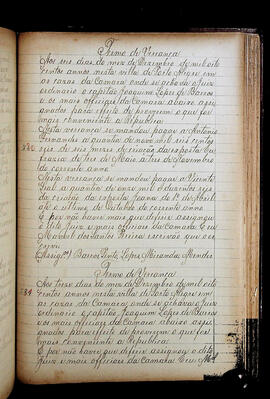 Termo de Vereança
Aos seis dias do mez de Dezembro de mil oito
centos annos nesta villa de Porto Alegre em
as cazas da Camara onde se achava o juiz
ordinario o capitão Joaquim Lopes de Barros
e os mais officiaes da Camara abaixo assig
nados para effeito de proverem o que fos
se mais conveniente a Republica.
Nesta vereança se mandou pagar a Antonio
Fernandes a quantia de nove mil e seis centos
reis de seis mezes de criação da exposta Eu
frazia de tres de Maio a tres de Novembro
do corrente anno.
Nesta vereança se mandou pagar a Vicente
a quantia de onze mil e duzentos reis
da criação da exposta Joanna do 1º de Abril
até o ultimo de Outubro do corrente anno
E por não haver mais que deferir assignou
o dito Juiz e mais officiaes da Camara. Eu
Manoel dos Santos escrivão que o es
crevi
(Assig.os) Barros, Pinto, Lopes, Miranda, Mendes
Termo de Vereança
Aos treze dias do mez de Dezembro de mil oito
centos annos nesta villa de Porto Alegre em
as cazas da Camara onde se achava o juiz
ordinario o capitão Joaquim Lopes de Barros
e os mais officiaes da Camara abaixo assig
nados para effeito de proverem o que fos
se mais conveniente a Republica.
E por não haver mais que deferir assignou o dito
Juiz e mais officiaes da Camara. Eu